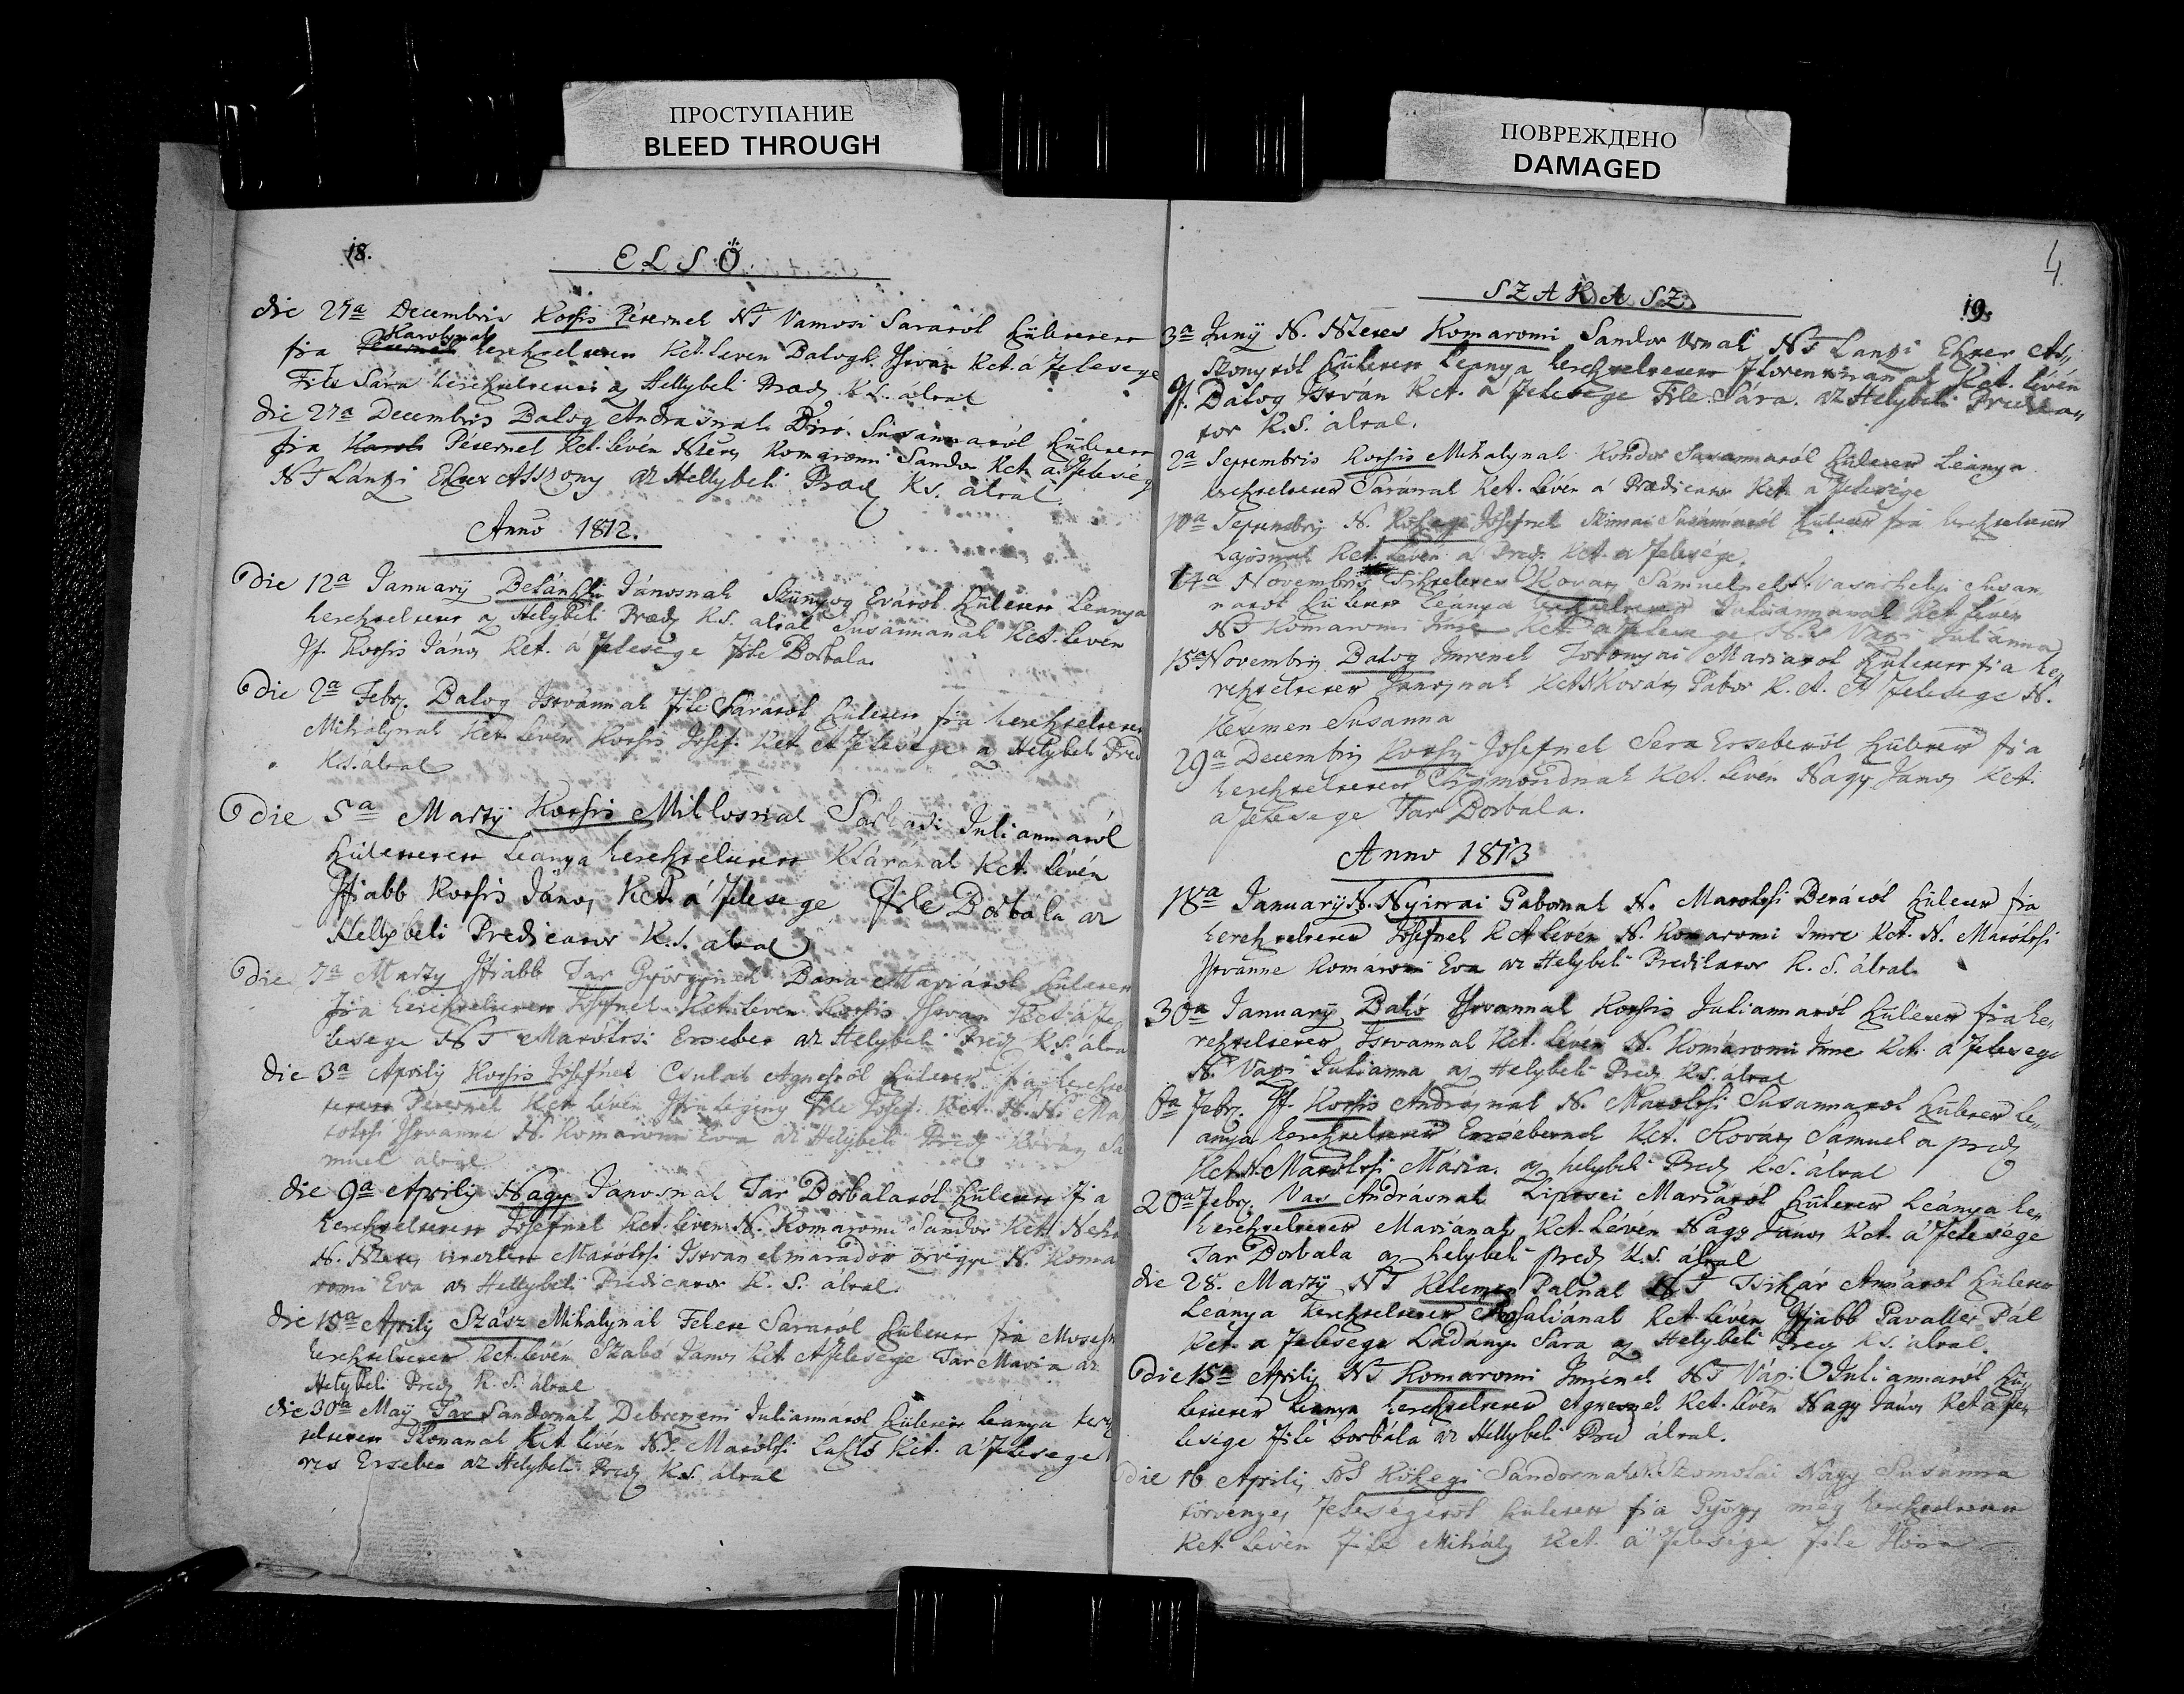 ПРОСТУПАНИЕ
BLEED THROUGH
ПОВРЕЖДЕНО
DAMAGED
18.
ELSŐ
die 27a Decembris Kotsis Péternek NT Vamosi Sararól született
fia Péternek Karolynak kereszteltetett Ket. leven Balogh Istvan Ket. á Felesege
File Sára kereszteltetett az Hellybeli Præd K S. által
die 27a Decembris Balog Andrásnak Biró Susannaról született
fia Karol Péternek Ket. lévén Ntzes Komaromi Sandor Ket. a Feleség
NT Lánzi Eszter Asszony az Hellybeli Præd Ks. által
Anno 1812.
Die 12a Januarÿ Jánosnak Szúnyog Evától születet Leanya
kereszteltetett az Helybeli Præd K.S. által Susannanak Ket. leven
If. Kotsis János Ket. á Felesege File Borbala.
Die 2a Febr. Balog Istvánnak File Sáratol születet fia keresztelteten
Mihálynak Ket. lévén Kotsis Josef Ket. A Felesége az Helybeli Pred
K.S. által
Die 5a Martÿ Kotsis Miklosnak Sarkadi Juliannaról
születetett Leanya kereszteltetett Klárának Ket. lévén
Ifiabb Kotsis János Ket. á Felesege File Borbála az
Hellybeli Predicator K.S. által
Die 7a Martÿ Ifiabb Tar Györgynek Mariától születet
fia kereszteltetett Josefnek Ket. leven Kotsis Istvan Ket. á Fe
lesege NT Marótsi Ersebet az Helybeli Pred K.S. által
die 3a Aprilÿ Kotsis Jósefnek Csulak Agnesről születet fia keresztel
tetett Péternek Ket lévén Ifiu legény File Josef Ket. N. N. Ma
Istvanne N. Komaromi Eva az Helybeli Pred Kóvás Sa
muel által
die 9a Aprilÿ Nagy Janosnak Tar Borbalaról születet fia
kereszteltetett Josefnek Ket. leven N. Komaromi Sandor Ket. Neh
N. Ntzes Marótsi Istvan elmaradott özvegye N. Koma
romi Eva az Hellybeli Predicator K. S. által.
die 15a Aprilÿ Szász Mihálynak Fekete Sararól születet fia Mosesn
kereszteltetett Ket. lévén Szabó Janos Ket. A Felesege Tar Maria az
Helybeli Pred K. S. által
die 30a Maÿ Tar Sandornak Debreczeni Juliannától születet leanya kere
teltetett Ilonanak Ket. lévén N.S. Ket. a Felesege
Ersebet az Helybeli Pred K.S. által
4
SZAKASZ
19.
3a Junÿ N. Ntzetes Komaromi Sandor Urnak NT Lanzi Eszter As„
szonytól születet Leanya kereszteltetett Ket. lévén
If. Balog István Ket. a Felesege File Sára. az Helybeli Predica„
tor K.S. által.
2a Septembris Kotsis Mihalynak Kondor Susannaról születet Leánya
kereszteltetett Sáránnak Ket. Lévén á Prædicator Ket. a Felesége
10a Septembris N. Kőszegi Josefnek Susánnáról születet fia kereszteltetett
Lajosnak Ket. lévén a Pred. Ket. a Felesége.
14a Novembris Kovats Sámuelnek N. Vasarhelyi Susan
naról született Leánya kereszteltetett Juliannanak Ket leven
NT Komaromi Imre Ket. a Felesege N. Vaji Julianna
15a Novembris Balog Imrenek Mariarol születet fia ke„
reszteltetett Janosnak Ket. Kovats Gábor K. A. A Felesege N.
Kelemen Susanna
29a Decembris Kotsis Josefnek Sera Ersebetről születet fia
kereszteltetett Zsigmondnak Ket. lévén Nagy János Ket.
a Felesege Tar Borbala.
Anno 1813
18a Januarÿ N. Nyirai Gabornak N. születet fia
kereszteltetett Jósefnek Ket lévén N. Komaromi Imre Ket. N. Marótsi
Istvánne Komáromi Eva az Helybeli Predikator K. S. által.
30a Januarÿ Bakó Istvannak Kotsis Juliannaról születet fia ke„
reszteltetett Istvannak Ket. lévén N. Komáromi Imre Ket. a Felesege
N. Vaji Julianna az Helybeli Pred. K.S. által
8a Febr. If. Kotsis Andrásnak N. Marótsi Susannarol születet Le„
anya kereszteltetett Ersébetnek Ket. Kovács Sámuel a pred
Ket. N. Marótsi Mária. az helybeli Pred K.S. által
20a Febr. Vas Andrásnak Mariáról születet Leánya ke„
kereszteltetett Mariának Ket. lévén Nagy János Ket. á Felesége
Tar Borbala az helybeli pred K.S. által
die 28. Martÿ NT Kelemen Palnak NT Annától születet
Leanya kereszteltetett Rosaliának Ket. lévén Ifiabb Pavalles Pál
Ket. a Felesege Ladányi Sára az Helybeli Pred K.S. által.
Die 15a Aprilÿ NT Komaromi Imrenek NT Váji Juliannaról szü„
letetett Leanya kereszteltetett Agnesnek Ket. lévén Nagy János Ket a Fe„
lesége File borbála az Hellybeli Pred által.
Die 16 Aprilÿ NS Kőszegi Sandornak N. Szomolai Nagy Susánna
törvényes Feleségétől születet fia György meg kereszteltetett
Ket. lévén File Mihály Ket. á Felesége File Ilona